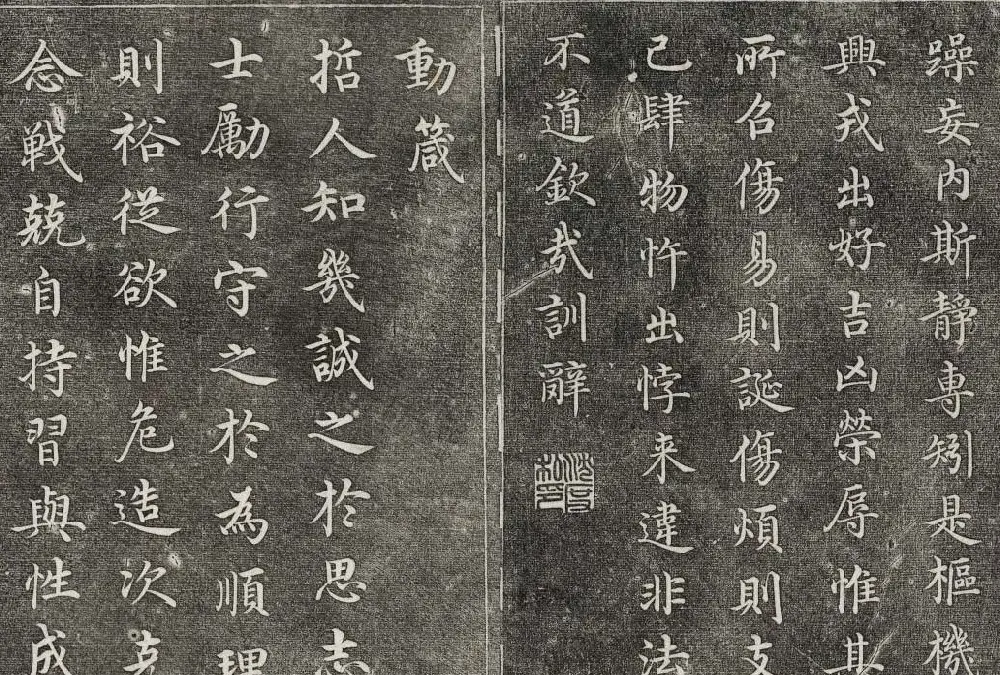 躁妄内斯靜專矧是樞機
興戎出好吉凶榮辱惟其
所召傷易則誕傷煩則支
己肆物忤出悖来違非法
不道欽哉訓辭
動箴
哲人知幾誠之於思志
士勵行守之於為順理
則裕從欲惟危造次克
念戦兢自持習與性成